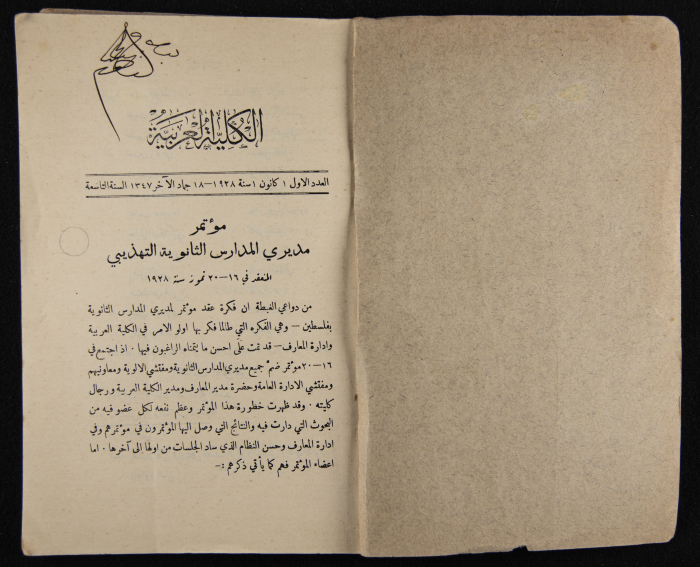 الكلية العربية
العدد الاول ١ كانون ١ سنة ١٩٢٨ — ١٨ جماد الآخر ١٣٤٧ السنة التاسعة
مؤتمر
مديري المدارس الثانوية التهذيبي
المنعقد في ١٦ — ٢٠ تموز سنة ١٩٢٨
من دواعي الغبطة ان فكرة عقد مؤتمر لمديري المدارس الثانوية
بفلسطين — وهي الفكره التي طالما فكر بها اولو الامر في الكلية العربية
وادارة المعارف — قد تمت على احسن ما يتمناه الراغبون فيها ٠ اذ اجتمع في
١٦—٢٠ مؤتمر ضم جميع مديري المدارس الثانوية ومفتشي الالوية ومعاونيهم
ومفتشي الادارة العامة وحضرة مدير المعارف ومدير الكلية العربية ورجال
كليته ٠ وقد ظهرت خطورة هذا المؤتمر وعظم نفعه لكل عضو فيه من
البحوث التي دارت فيه والنتائج التي وصل اليها المؤتمرون في مؤتمرهم وفي
ادارة المعارف وحسن النظام الذي ساد الجلسات من اولها الى آخرها ٠ اما
اعضاء المؤتمر فهم كما يأتي ذكرهم :—